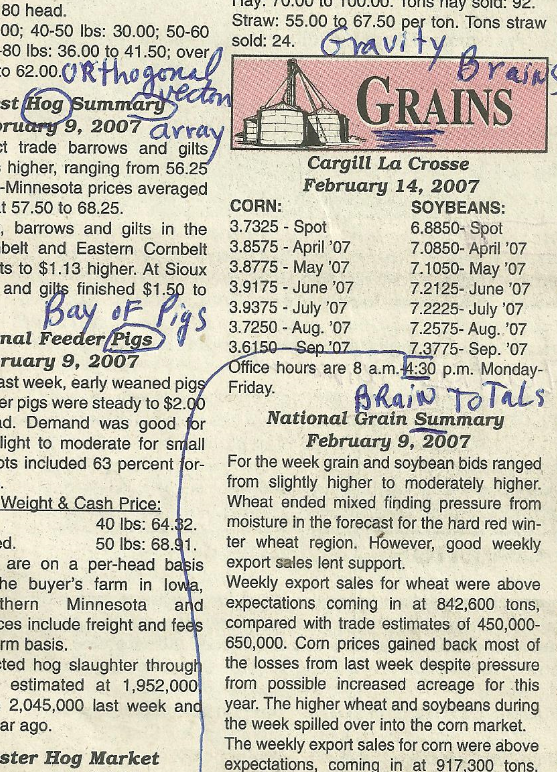 80 head.
00; 40-50 lbs: 30.00; 50-60
-80 lbs: 36.00 to 41.50; over
to 62.00.
ORthogonal
vector
array
st Hog Summary
bruary 9, 2007
ct trade barrows and gilts
s higher, ranging from 56.25
-Minnesota prices averaged
at 57.50 to 68.25.
, barrows and gilts in the
nbelt and Eastern Cornbelt
ts to $1.13 higher. At Sioux
and gilts finished $1.50 to
Bay of Pigs
nal Feeder Pigs
ruary 9, 2007
ast week, early weaned pigs
er pigs were steady to $2.00
ad. Demand was good for
light to moderate for small
ots included 63 percent for-
Weight & Cash Price:
40 lbs: 64.32.
ed. 50 lbs: 68.91.
are on a per-head basis
he buyer's farm in Iowa,
thern Minnesota and
ces include freight and fees
rm basis.
cted hog slaughter through
estimated at 1,952,000
2,045,000 last week and
ar ago.
ster Hog Market
Hay: 70.00 to 100.00. Tons hay sold: 92.
Straw: 55.00 to 67.50 per ton. Tons straw
sold: 24.
Gravity Brains
GRAINS
Cargill La Crosse
February 14, 2007
CORN: SOYBEANS:
3.7325 - Spot 6.8850- Spot
3.8575 - April '07 7.0850- April '07
3.8775 - May '07 7.1050- May '07
3.9175 - June '07 7.2125- June '07
3.9375 - July '07 7.2225- July '07
3.7250 - Aug. '07 7.2575- Aug. '07
3.6150 - Sep '07 7.3775- Sep. '07
Office hours are 8 a.m.-4:30 p.m. Monday-
Friday.
BRAIN ToTaLs
National Grain Summary
February 9, 2007
For the week grain and soybean bids ranged
from slightly higher to moderately higher.
Wheat ended mixed finding pressure from
moisture in the forecast for the hard red win-
ter wheat region. However, good weekly
export sales lent support.
Weekly export sales for wheat were above
expectations coming in at 842,600 tons,
compared with trade estimates of 450,000-
650,000. Corn prices gained back most of
the losses from last week despite pressure
from possible increased acreage for this
year. The higher wheat and soybeans during
the week spilled over into the corn market.
The weekly export sales for corn were above
expectations, coming in at 917,300 tons,